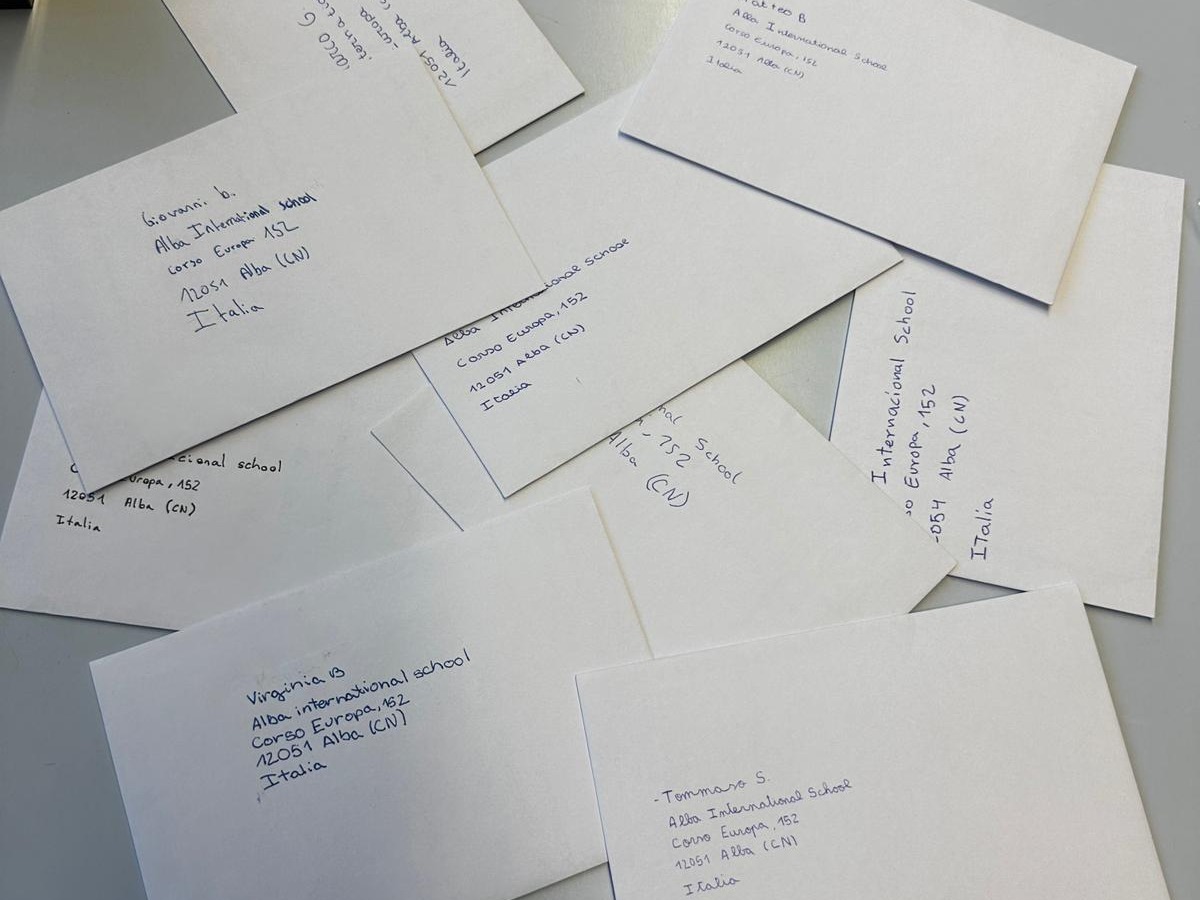 12051 Alba
Italia
B
Alba International School
Corso Europa, 152
12051 Alba (CN)
Italia
Giovanni b.
Alba International School
Corso Europa 152
12051 Alba (CN)
Italia
Alba
School
Corso Europa, 152
12051 Alba (CN)
Italia
Internacional School
Europa, 152
Alba (CN)
ITalia
school
152
12051 Alba (CN)
Italia
School
Alba (CN)
Virginia B
Alba international school
Corso Europa, 152
12051 Alba (CN)
Italia
-Tommaso S.
Alba International School
Corso Europa, 152
12051 Alba (CN)
Italia